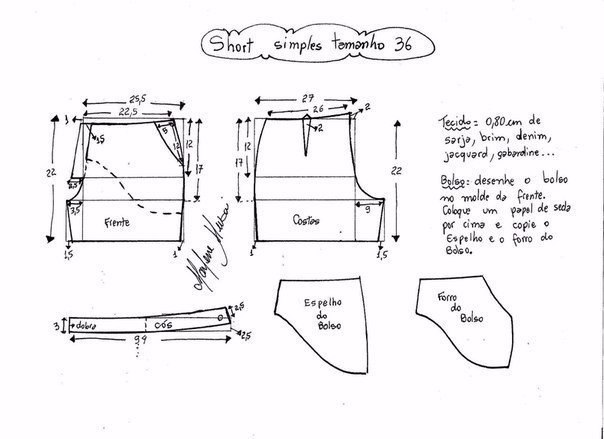 Short simples tamanho 36
25,5
22,5
1
3,5
5
12
12
17
22
3,5
3,5
Frente
1,5
1
27
26
2
2
12
17
22
9
Costas
1
1,5
Tecido: 0,80cm de
sarja, brim, denim,
jacquard, gabardine...
Bolso: desenhe o bolso
no molde da frente.
Coloque um papel de seda
por cima e copie o
Espelho e o forro do
Bolso.
2,5
3
dobra
cós
2,5
99
Espelho
do
Bolso
Forro
do
Bolso